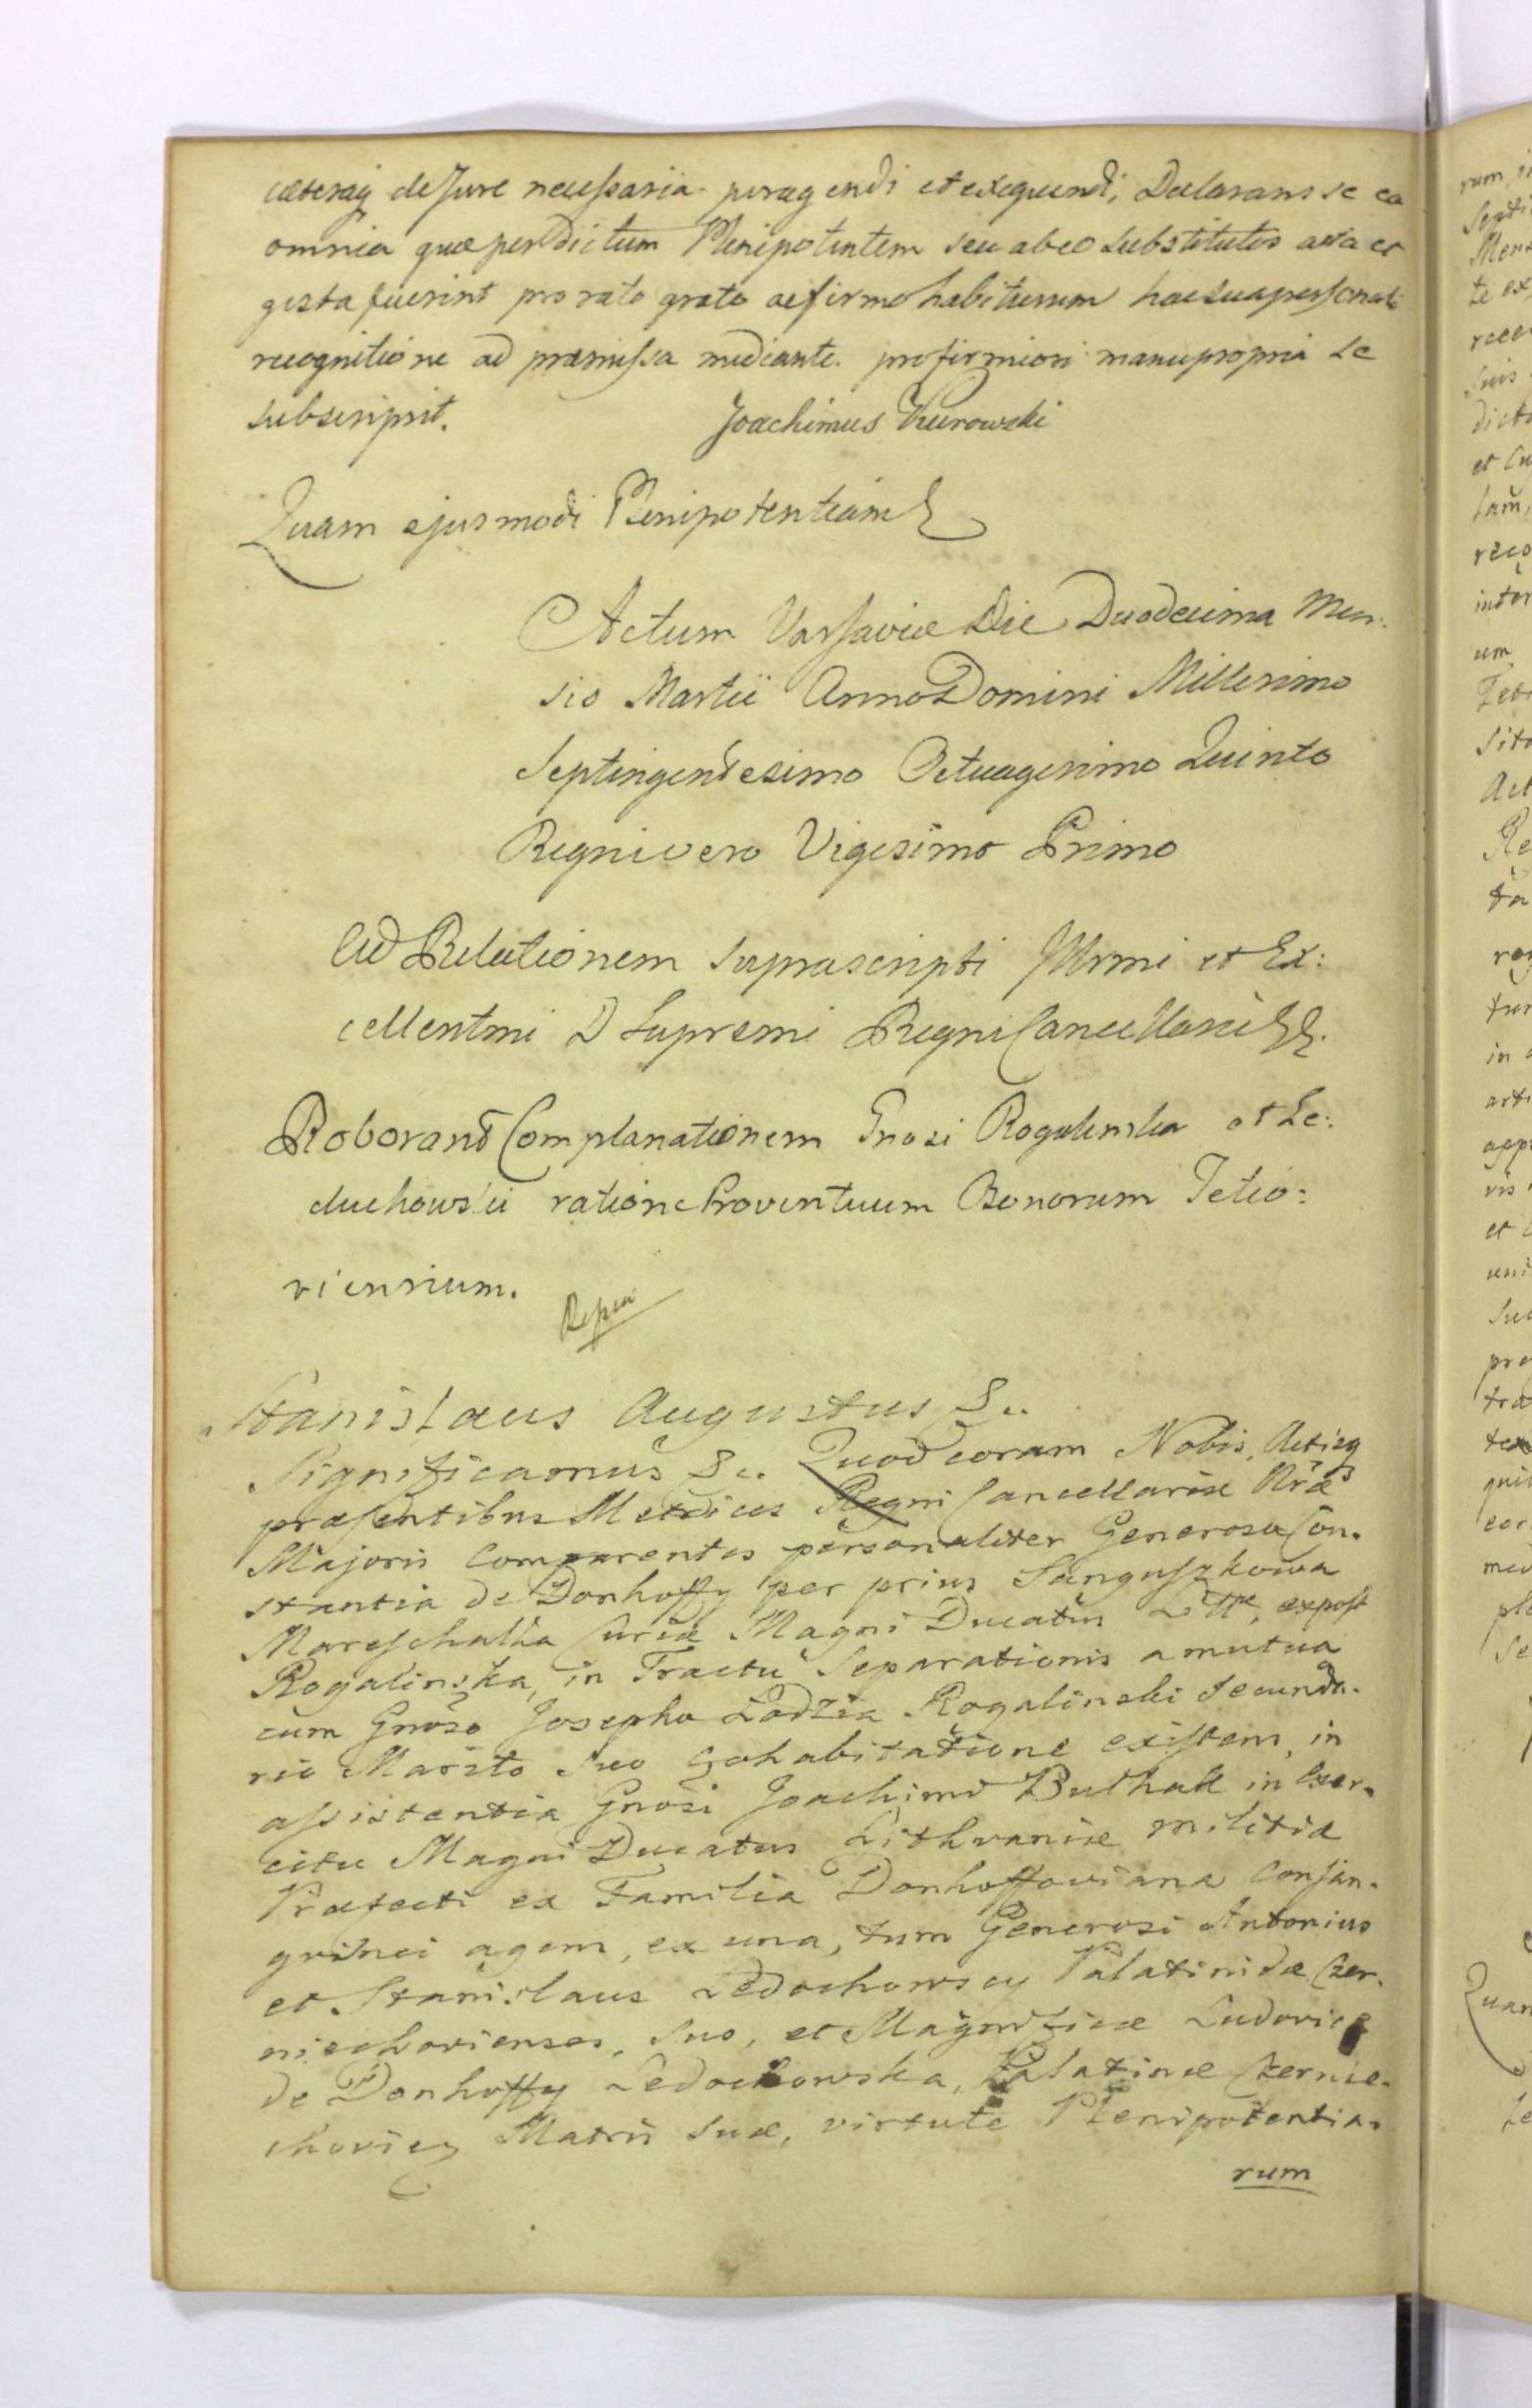 cæteraq de Jure necessaria peragendi et exequendi, Declarans se ea
omnia quæ per dictum Plenipotentem seu ab eo substitutos acta et
gesta fuerint pro rato grato ac firmo habiturum hac sua personali
recognitione ad præmissa mediante. pro firmiori manu propria se
subscripsit. Joachimus Kurowski
Quam ejusmodi Plenipotentiam
Actum Varsaviæ Die Duodecima Men:
sis Martii Anno Domini Millesimo
Septingentesimo Octuagesimo Quinto
Regni vero Vigesimo Primo
Ad Relationem suprascripti Illrmi et Ex:
cellentmi D Supremi Regni Cancellarii
Roborand Complanationem Gnosi Rogalinska et Le:
duchowski ratione Proventuum Bonorum Tetio:
riensium.
Stanislaus Augustus &c.
Significamus &c. Quod coram Nobis, Actisq
præsentibus Metrices Regni Cancellariæ Nræ
Majoris Comparentes personaliter Generosa Con-
stantia de Donhoffy per prius Sanguszkowa
Mareschalka Curiæ Magni Ducatus Litt, expost
Rogalinska, in Tractu Separationis a mutua
cum Gnoso Josepho Lodzia Rogalinski secunda-
rio Marito suo Cohabitatione existens, in
assistentia Gnosi Joachimi Buthak in Exer-
citu Magni Ducatus Lithvaniæ militiæ
Præfecti ex Familia Donhoffowiana Consan-
gvinei agens, ex una, tum Generosi Antonius
et Stanislaus Ledochowscy Palatinidæ Czer-
niechovienses, suo, et Magnificæ Ludovicæ
de Donhoffy Ledochowska, Palatinæ Czernie-
choviey Matris suæ, virtute Plenipotentia-
rum